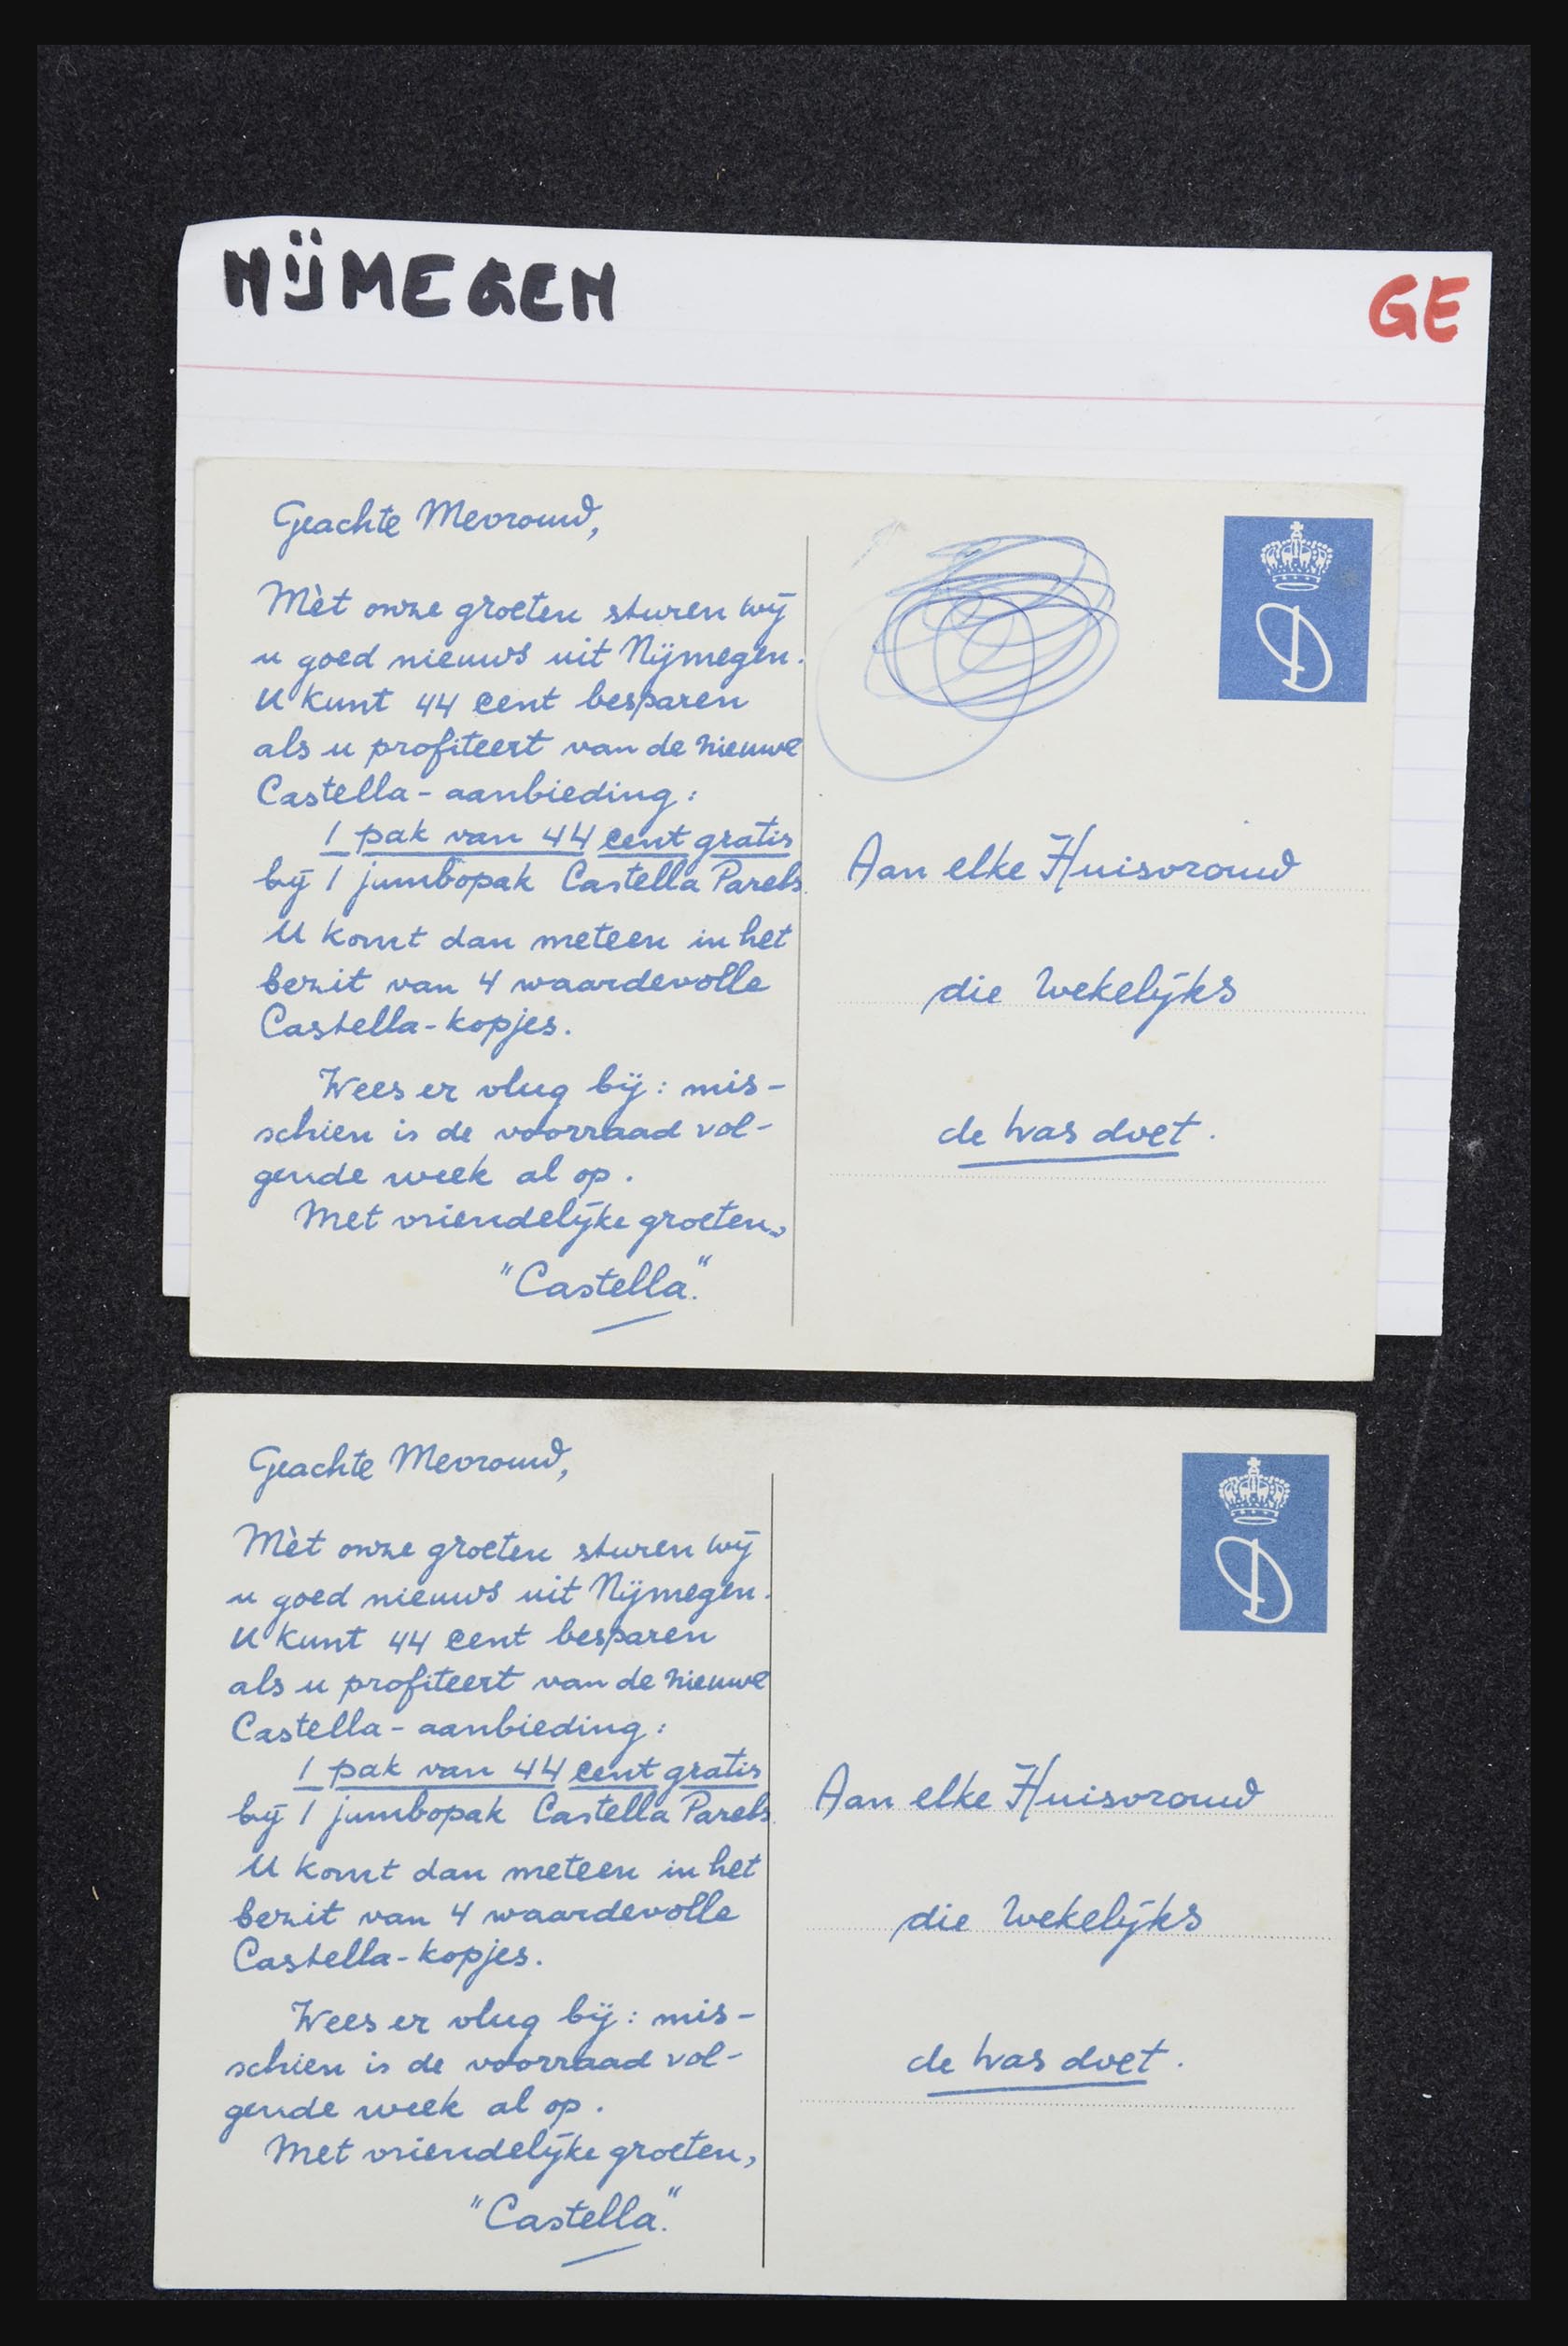 NIJMEGEN
GE
Geachte Mevrouw,
Mèt onze groeten sturen wij
u goed nieuws uit Nijmegen.
U kunt 44 cent besparen
als u profiteert van de nieuwe
Castella-aanbieding:
1 pak van 44 cent gratis
bij 1 jumbopak Castella Parels.
U komt dan meteen in het
bezit van 4 waardevolle
Castella-kopjes.
Wees er vlug bij: mis-
schien is de voorraad vol-
gende week al op.
Met vriendelijke groeten,
"Castella."
D
Aan elke Huisvrouw
die wekelijks
de was doet.
Geachte Mevrouw,
Mèt onze groeten sturen wij
u goed nieuws uit Nijmegen.
U kunt 44 cent besparen
als u profiteert van de nieuwe
Castella-aanbieding:
1 pak van 44 cent gratis
bij 1 jumbopak Castella Parels.
U komt dan meteen in het
bezit van 4 waardevolle
Castella-kopjes.
Wees er vlug bij: mis-
schien is de voorraad vol-
gende week al op.
Met vriendelijke groeten,
"Castella."
D
Aan elke Huisvrouw
die wekelijks
de was doet.